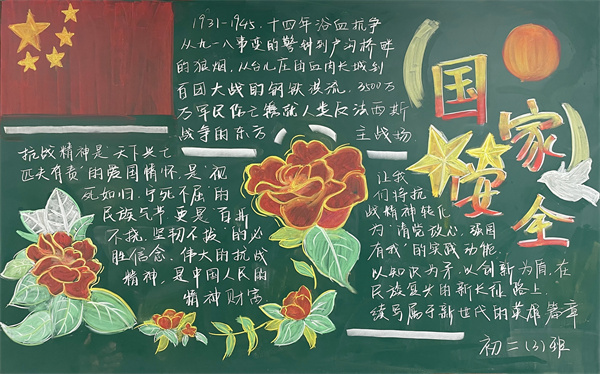 国家安全
1931-1945.十四年浴血抗争
从九一八事变的警钟到卢沟桥畔
的狼烟,从台儿庄的血肉长城到
百团大战的钢铁洪流,3500万
万军民伤亡铸就人类反法西斯
战争的东方主战场
抗战精神是“天下兴亡
匹夫有责”的爱国情怀,是“视
死如归、宁死不屈”的
民族气节更是“百折
不挠、坚韧不拔”的必
胜信念。伟大的抗战
精神,是中国人民的
精神财富
让我
们将抗
战精神转化
为“请党放心,强国
有我”的实践动能.
以知识为矛,以创新为盾,在
民族复兴的新长征路上,
续写属于新世代的英雄篇章
初二(3)班